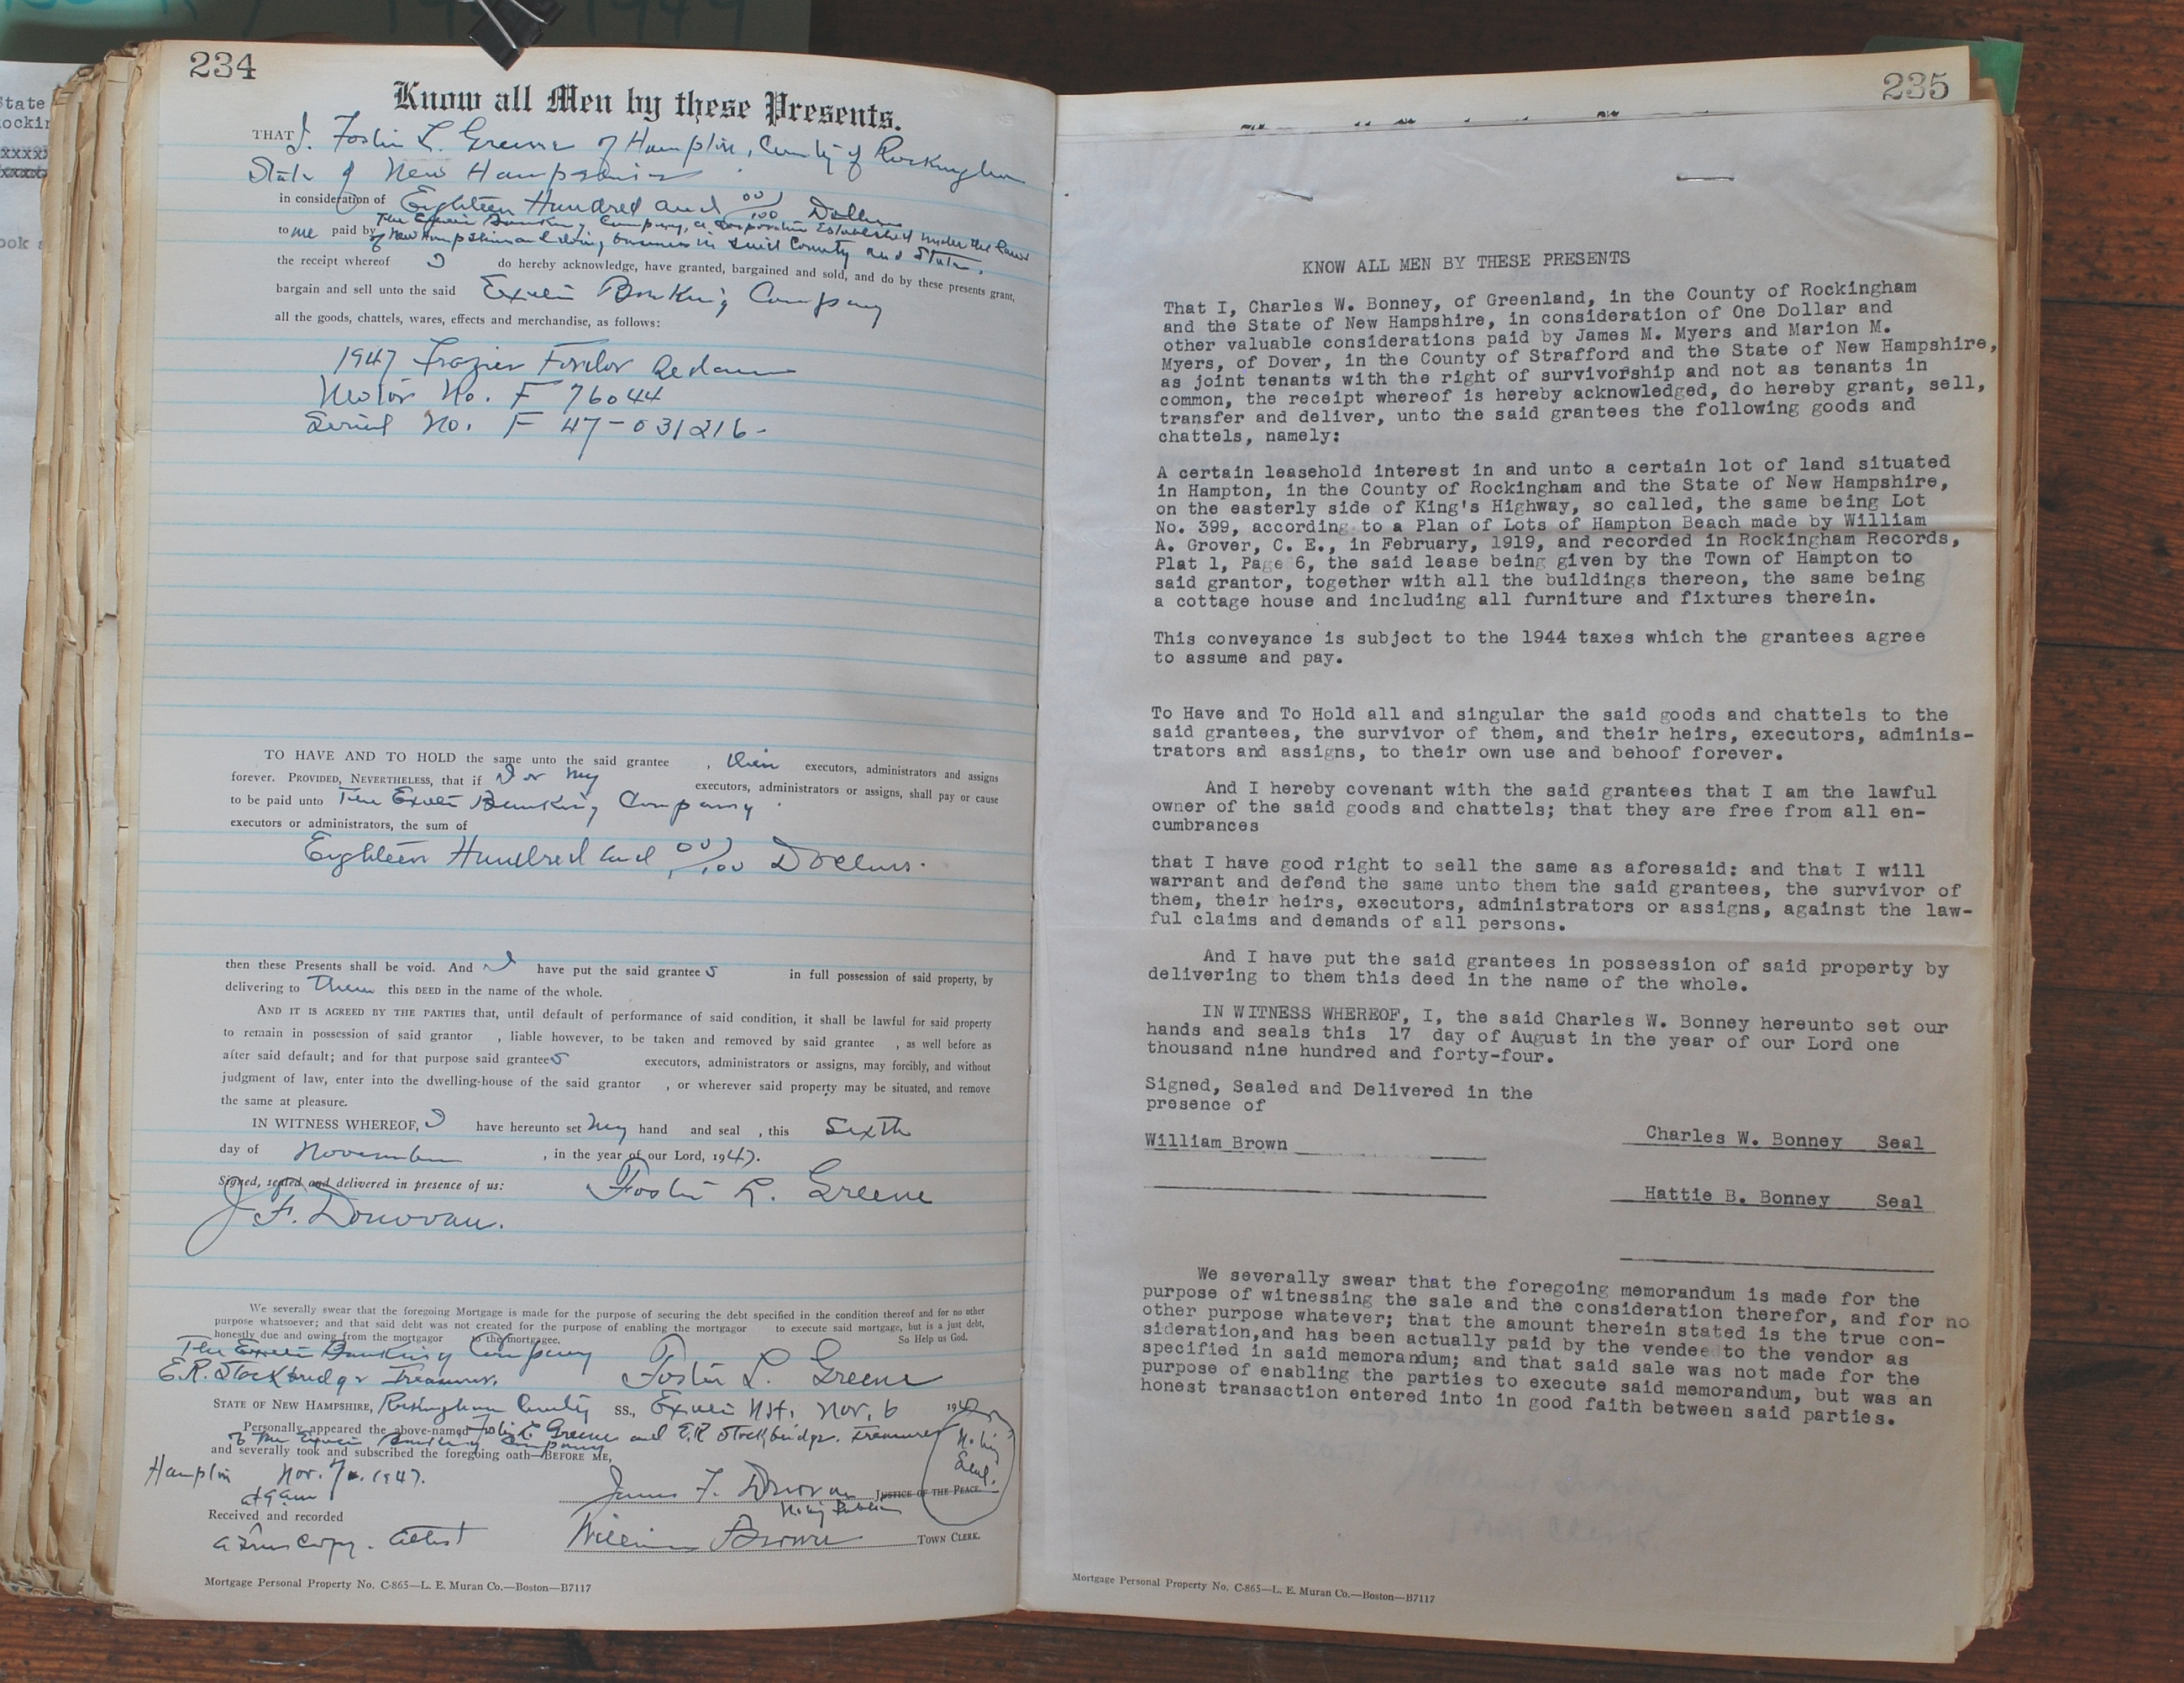 1947 1949
State
ockin
xxxxx
xxxxx
ook a
234
Know all Men by these Presents.
THAT I, Foster L. Greene of Hampton, County of Rockingham
State of New Hampshire
in consideration of Eighteen Hundred and 00/100 Dollars
to me paid by The Exeter Banking Company, a corporation Established under the laws
of New Hampshire and doing business in said County and State,
the receipt whereof I do hereby acknowledge, have granted, bargained and sold, and do by these presents grant,
bargain and sell unto the said Exeter Banking Company
all the goods, chattels, wares, effects and merchandise, as follows:
1947 Frazier Fordor Sedan
Motor No. F 76044
Serial No. F 47-031216-
TO HAVE AND TO HOLD the same unto the said grantee , their executors, administrators and assigns
forever. PROVIDED, NEVERTHELESS, that if I or my executors, administrators or assigns, shall pay or cause
to be paid unto The Exeter Banking Company
executors or administrators, the sum of
Eighteen Hundred and 00/100 Dollars.
then these Presents shall be void. And I have put the said grantees in full possession of said property, by
delivering to Them this DEED in the name of the whole.
AND IT IS AGREED BY THE PARTIES that, until default of performance of said condition, it shall be lawful for said property
to remain in possession of said grantor , liable however, to be taken and removed by said grantee , as well before as
after said default; and for that purpose said grantees executors, administrators or assigns, may forcibly, and without
judgment of law, enter into the dwelling-house of the said grantor , or wherever said property may be situated, and remove
the same at pleasure.
IN WITNESS WHEREOF, I have hereunto set my hand and seal , this Sixth
day of November , in the year of our Lord, 1947.
Signed, sealed and delivered in presence of us: Foster L. Greene
J. F. Donovan.
We severally swear that the foregoing Mortgage is made for the purpose of securing the debt specified in the condition thereof and for no other
purpose whatsoever; and that said debt was not created for the purpose of enabling the mortgagor to execute said mortgage, but is a just debt,
honestly due and owing from the mortgagor to the mortgagee. So Help us God.
The Exeter Banking Company
E.R. Stockbridge Treasurer. Foster L. Greene
STATE OF NEW HAMPSHIRE, Rockingham County SS., Exeter N.H. Nov. 6 1947
Personally appeared the above-named Foster L. Greene and E.R. Stockbridge. Treasurer
of The Exeter Banking Company
and severally took and subscribed the foregoing oath—BEFORE ME,
Notary
Seal.
Hampton Nov. 7. 1947.
at 9 am
James F. Donovan JUSTICE OF THE PEACE.
Notary Public
Received and recorded
a True Copy. Attest William Brown TOWN CLERK.
Mortgage Personal Property No. C-865—L. E. Muran Co.—Boston—B7117
235
KNOW ALL MEN BY THESE PRESENTS
That I, Charles W. Bonney, of Greenland, in the County of Rockingham
and the State of New Hampshire, in consideration of One Dollar and
other valuable considerations paid by James M. Myers and Marion M.
Myers, of Dover, in the County of Strafford and the State of New Hampshire,
as joint tenants with the right of survivorship and not as tenants in
common, the receipt whereof is hereby acknowledged, do hereby grant, sell,
transfer and deliver, unto the said grantees the following goods and
chattels, namely:
A certain leasehold interest in and unto a certain lot of land situated
in Hampton, in the County of Rockingham and the State of New Hampshire,
on the easterly side of King's Highway, so called, the same being Lot
No. 399, according to a Plan of Lots of Hampton Beach made by William
A. Grover, C. E., in February, 1919, and recorded in Rockingham Records,
Plat 1, Page 6, the said lease being given by the Town of Hampton to
said grantor, together with all the buildings thereon, the same being
a cottage house and including all furniture and fixtures therein.
This conveyance is subject to the 1944 taxes which the grantees agree
to assume and pay.
To Have and To Hold all and singular the said goods and chattels to the
said grantees, the survivor of them, and their heirs, executors, adminis-
trators and assigns, to their own use and behoof forever.
And I hereby covenant with the said grantees that I am the lawful
owner of the said goods and chattels; that they are free from all en-
cumbrances
that I have good right to sell the same as aforesaid: and that I will
warrant and defend the same unto them the said grantees, the survivor of
them, their heirs, executors, administrators or assigns, against the law-
ful claims and demands of all persons.
And I have put the said grantees in possession of said property by
delivering to them this deed in the name of the whole.
IN WITNESS WHEREOF, I, the said Charles W. Bonney hereunto set our
hands and seals this 17 day of August in the year of our Lord one
thousand nine hundred and forty-four.
Signed, Sealed and Delivered in the
presence of
William Brown Charles W. Bonney Seal
Hattie B. Bonney Seal
We severally swear that the foregoing memorandum is made for the
purpose of witnessing the sale and the consideration therefor, and for no
other purpose whatever; that the amount therein stated is the true con-
sideration,and has been actually paid by the vendee to the vendor as
specified in said memorandum; and that said sale was not made for the
purpose of enabling the parties to execute said memorandum, but was an
honest transaction entered into in good faith between said parties.
Mortgage Personal Property No. C-865—L. E. Muran Co.—Boston—B7117